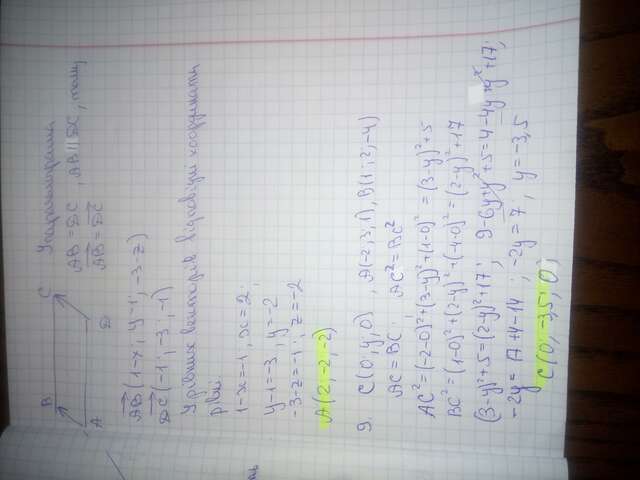 B C
A D
У паралелограма
AB = DC, AB || DC, тому
AB = DC
AB (1-x; y-1; -3-z)
DC (-1; -3; -1)
У рівних векторів відповідні координати
рівні.
1-x=-1; x=2;
y-1=-3; y=-2
-3-z=-1; z=-2
A(2; -2; -2)
9. C(0; y; 0), A(-2; 3; 1), B(1; 2; -4)
AC = BC; AC² = BC²
AC² = (-2-0)²+(3-y)²+(1-0)² = (3-y)²+5
BC² = (1-0)²+(2-y)²+(-4-0)² = (2-y)²+17
(3-y)²+5 = (2-y)²+17; 9-6y+y²+5 = 4-4y+y²+17;
-2y = 17+4-14; -2y = 7; y = -3,5
C(0; -3,5; 0)